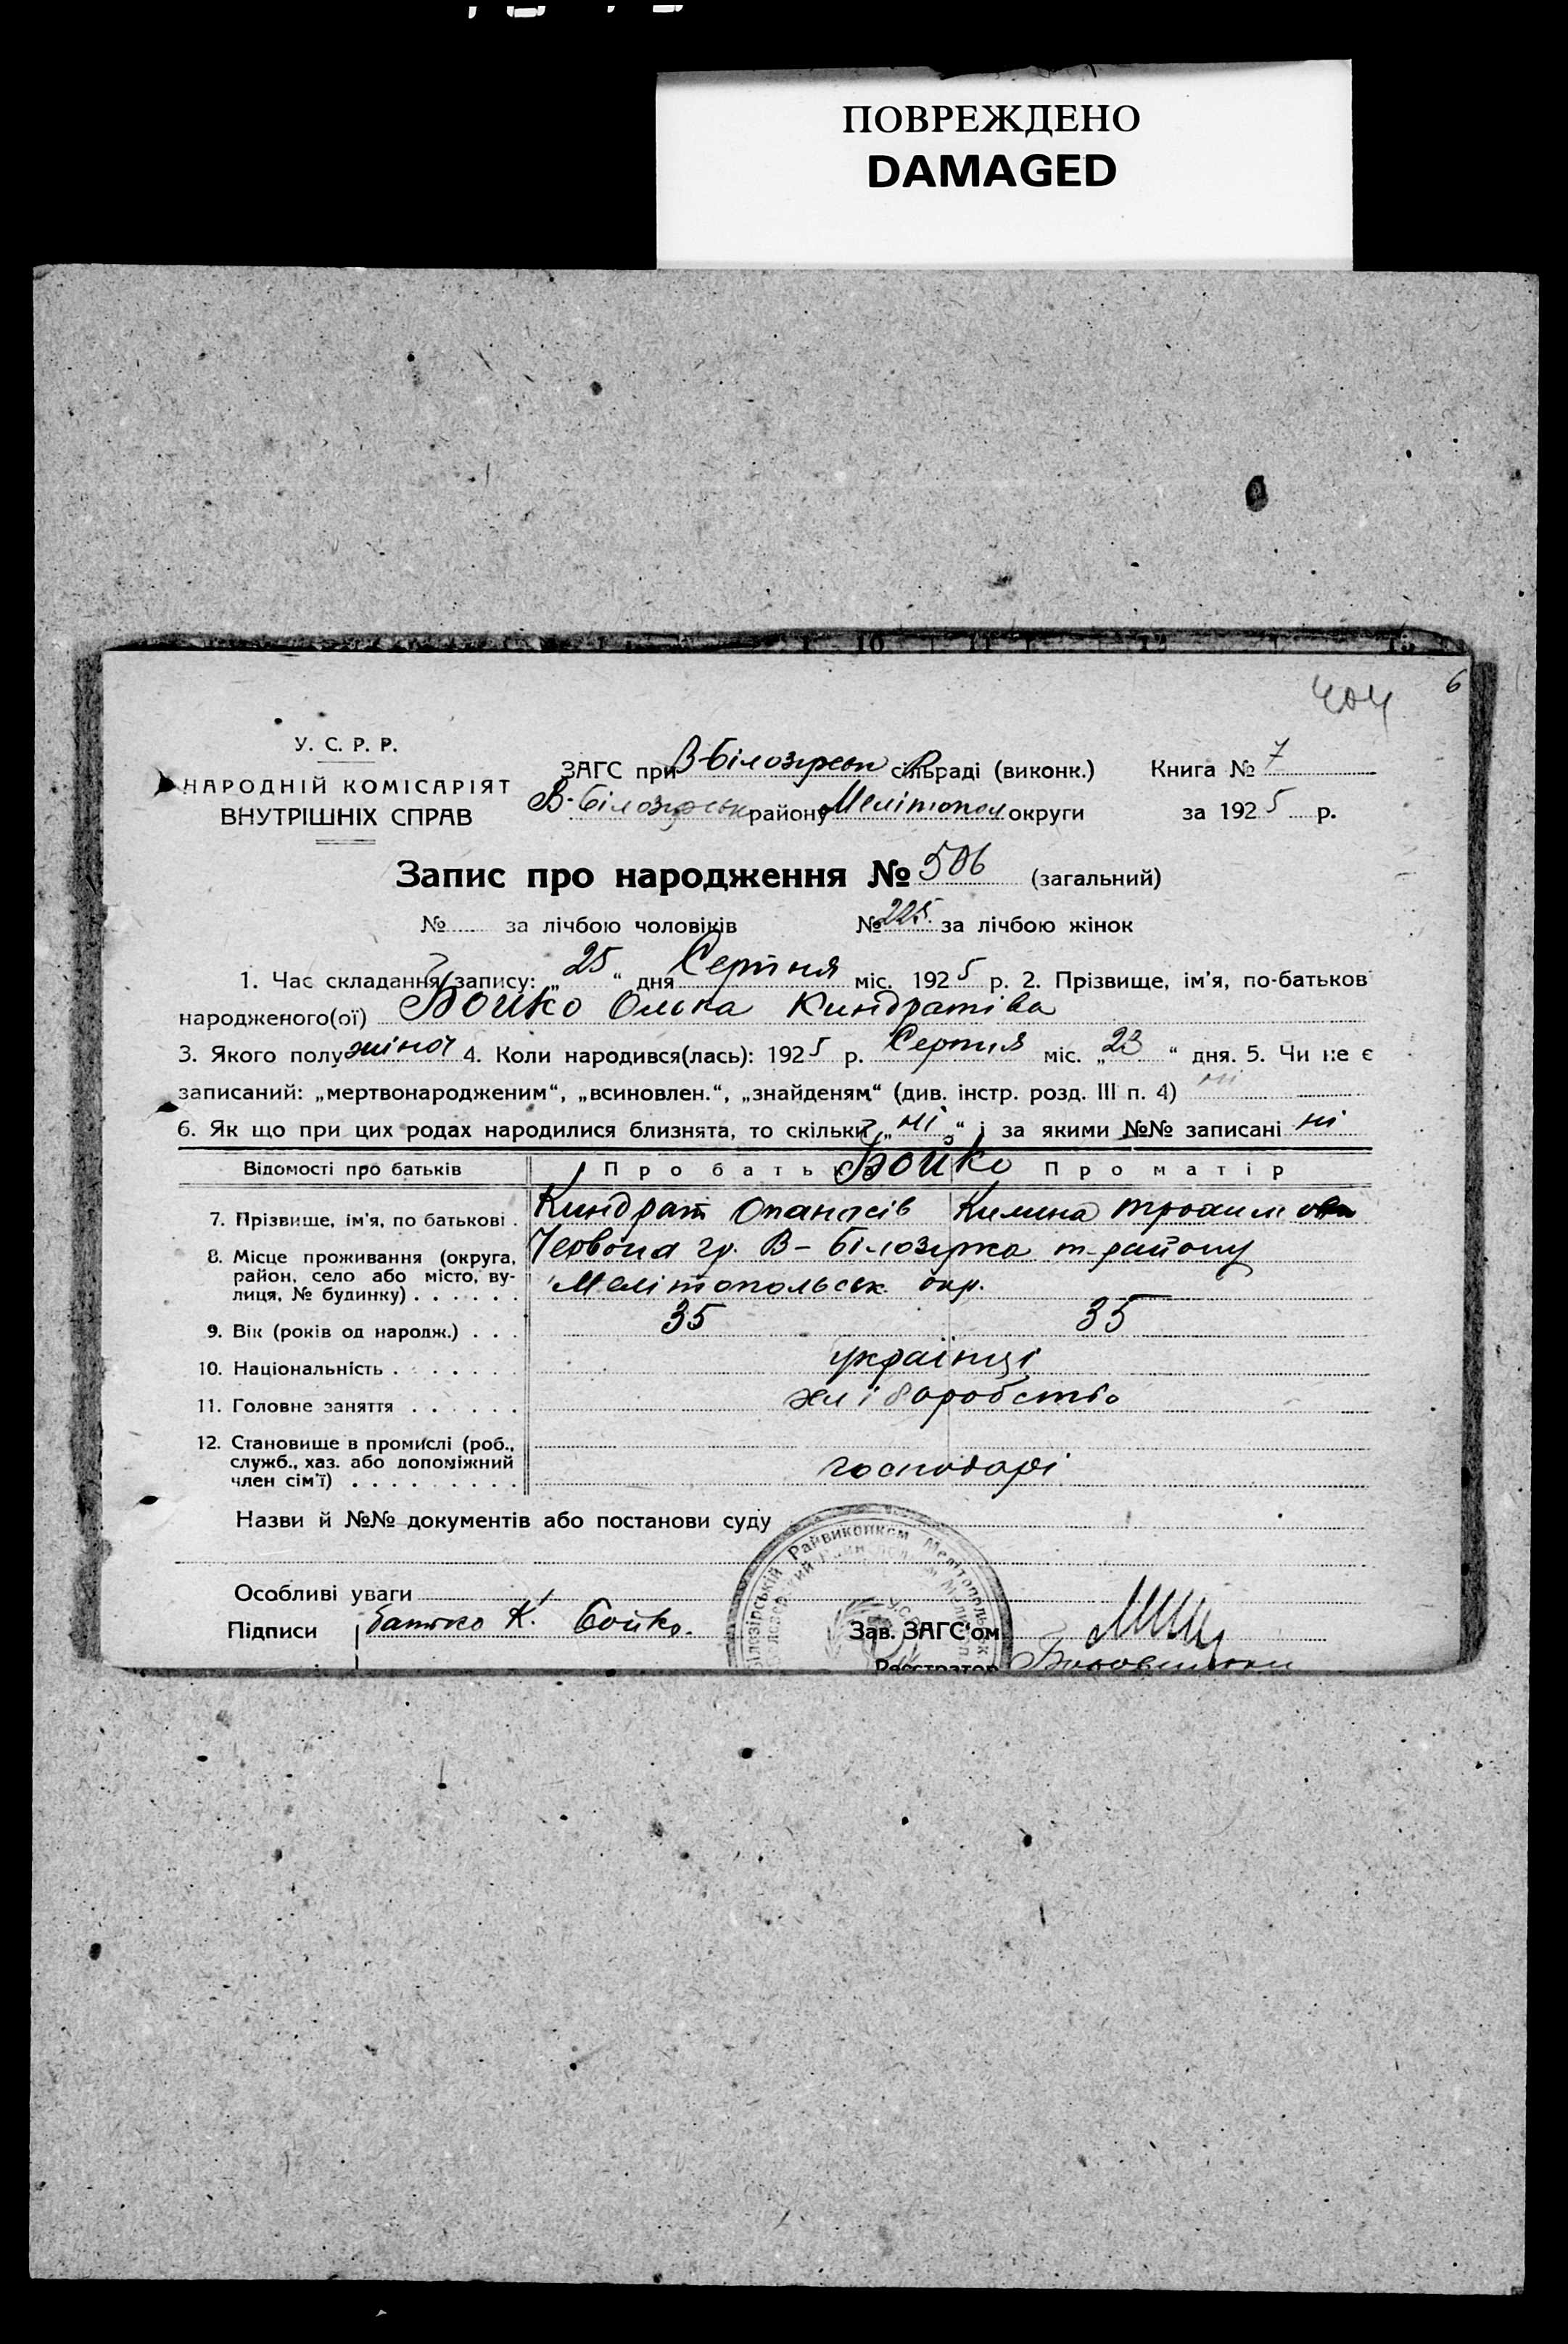 ПОВРЕЖДЕНО
DAMAGED
404 6
У. С. Р. Р.
НАРОДНІЙ КОМІСАРІЯТ
ВНУТРІШНІХ СПРАВ
ЗАГС при В-Білозірськ сільраді (виконк.) Книга № 7
В-Білозірськ району Мелітопол округи за 1925 р.
Запис про народження № 506 (загальний)
№ за лічбою чоловіків № 225 за лічбою жінок
1. Час складання запису: „25“ дня Серпня міс. 1925 р. 2. Прізвище, ім'я, по-батьков
народженого(ої) Бойко Олька Киндратіва
3. Якого полу жіноч 4. Коли народився(лась): 1925 р. Серпня міс. „23“ дня. 5. Чи не є
записаний: „мертвонародженим“, „всиновлен.“, „знайденям“ (див. інстр. розд. III п. 4) ні
6. Як що при цих родах народилися близнята, то скільки „ні“ і за якими №№ записані ні
Відомості про батьків Про батька Бойко Про матір
7. Прізвище, ім'я, по батькові . Киндрат Опанасів Килина
8. Місце проживання (округа, Червона гр. В-Білозірка т-району
район, село або місто, ву- Мелітопольськ. окр.
лиця, № будинку) . . . . . .
9. Вік (років од народж.) . . . 35 35
10. Національність . . . . . . . українці
11. Головне заняття . . . . . . хліборобство
12. Становище в промислі (роб.,
служб., хаз. або допоміжний господарі
член сім'ї) . . . . . . . . .
Назви й №№ документів або постанови суду
Райвиконком Мелітопольськ
Особливі уваги
Підписи батько К. Бойко. Зав. ЗАГС'ом
Реєстратор